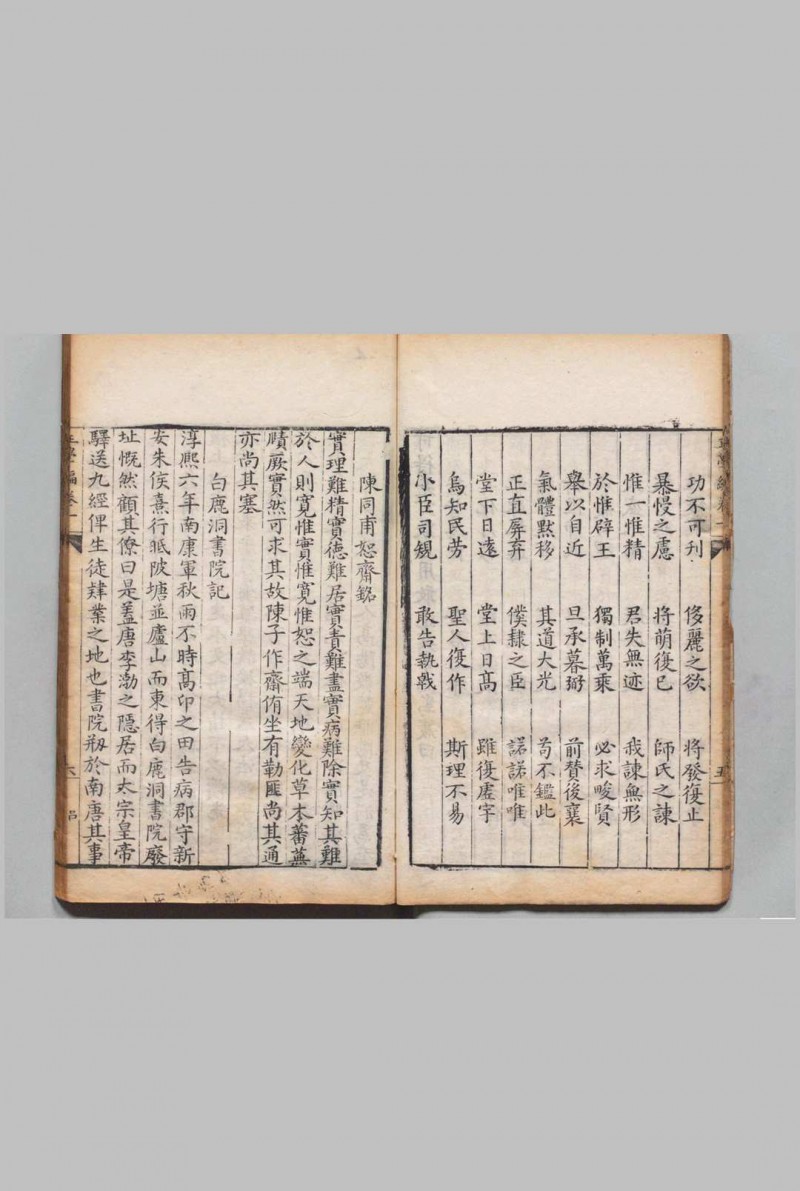 功不可刊 侈麗之欲 將發復止
暴慢之慮 將萌復已 師氏之諫
惟一惟精 君失無迹 我諫無形
於惟辟王 獨制萬乘 必求畯賢
舉以自近 旦承暮弼 前贊後襄
氣體黙移 其道大光 苟不鑑此
正直屏弃 僕隸之臣 諾諾唯唯
堂下日逺 堂上日髙 雖復虛宇
烏知民劳 聖人復作 斯理不易
小臣司䂓 敢告執戟
五
陳同甫恕齋銘
實理難精實德難居實責難盡實病難除實知其難
於人則寛惟實惟寛惟恕之端天地變化草木蕃蕪
賾厥實然可求其故陳子作齋侑坐有勒匪尚其通
亦尚其塞
白鹿洞書院記
淳熈六年南康軍秋雨不時髙卬之田告病郡守新
安朱侯熹行眂陂塘並廬山而東得白鹿洞書院廢
址慨然顧其僚曰是盖唐李渤之隱居而太宗皇帝
驛送九經俾生徒肄業之地也書院剏於南唐其事
六